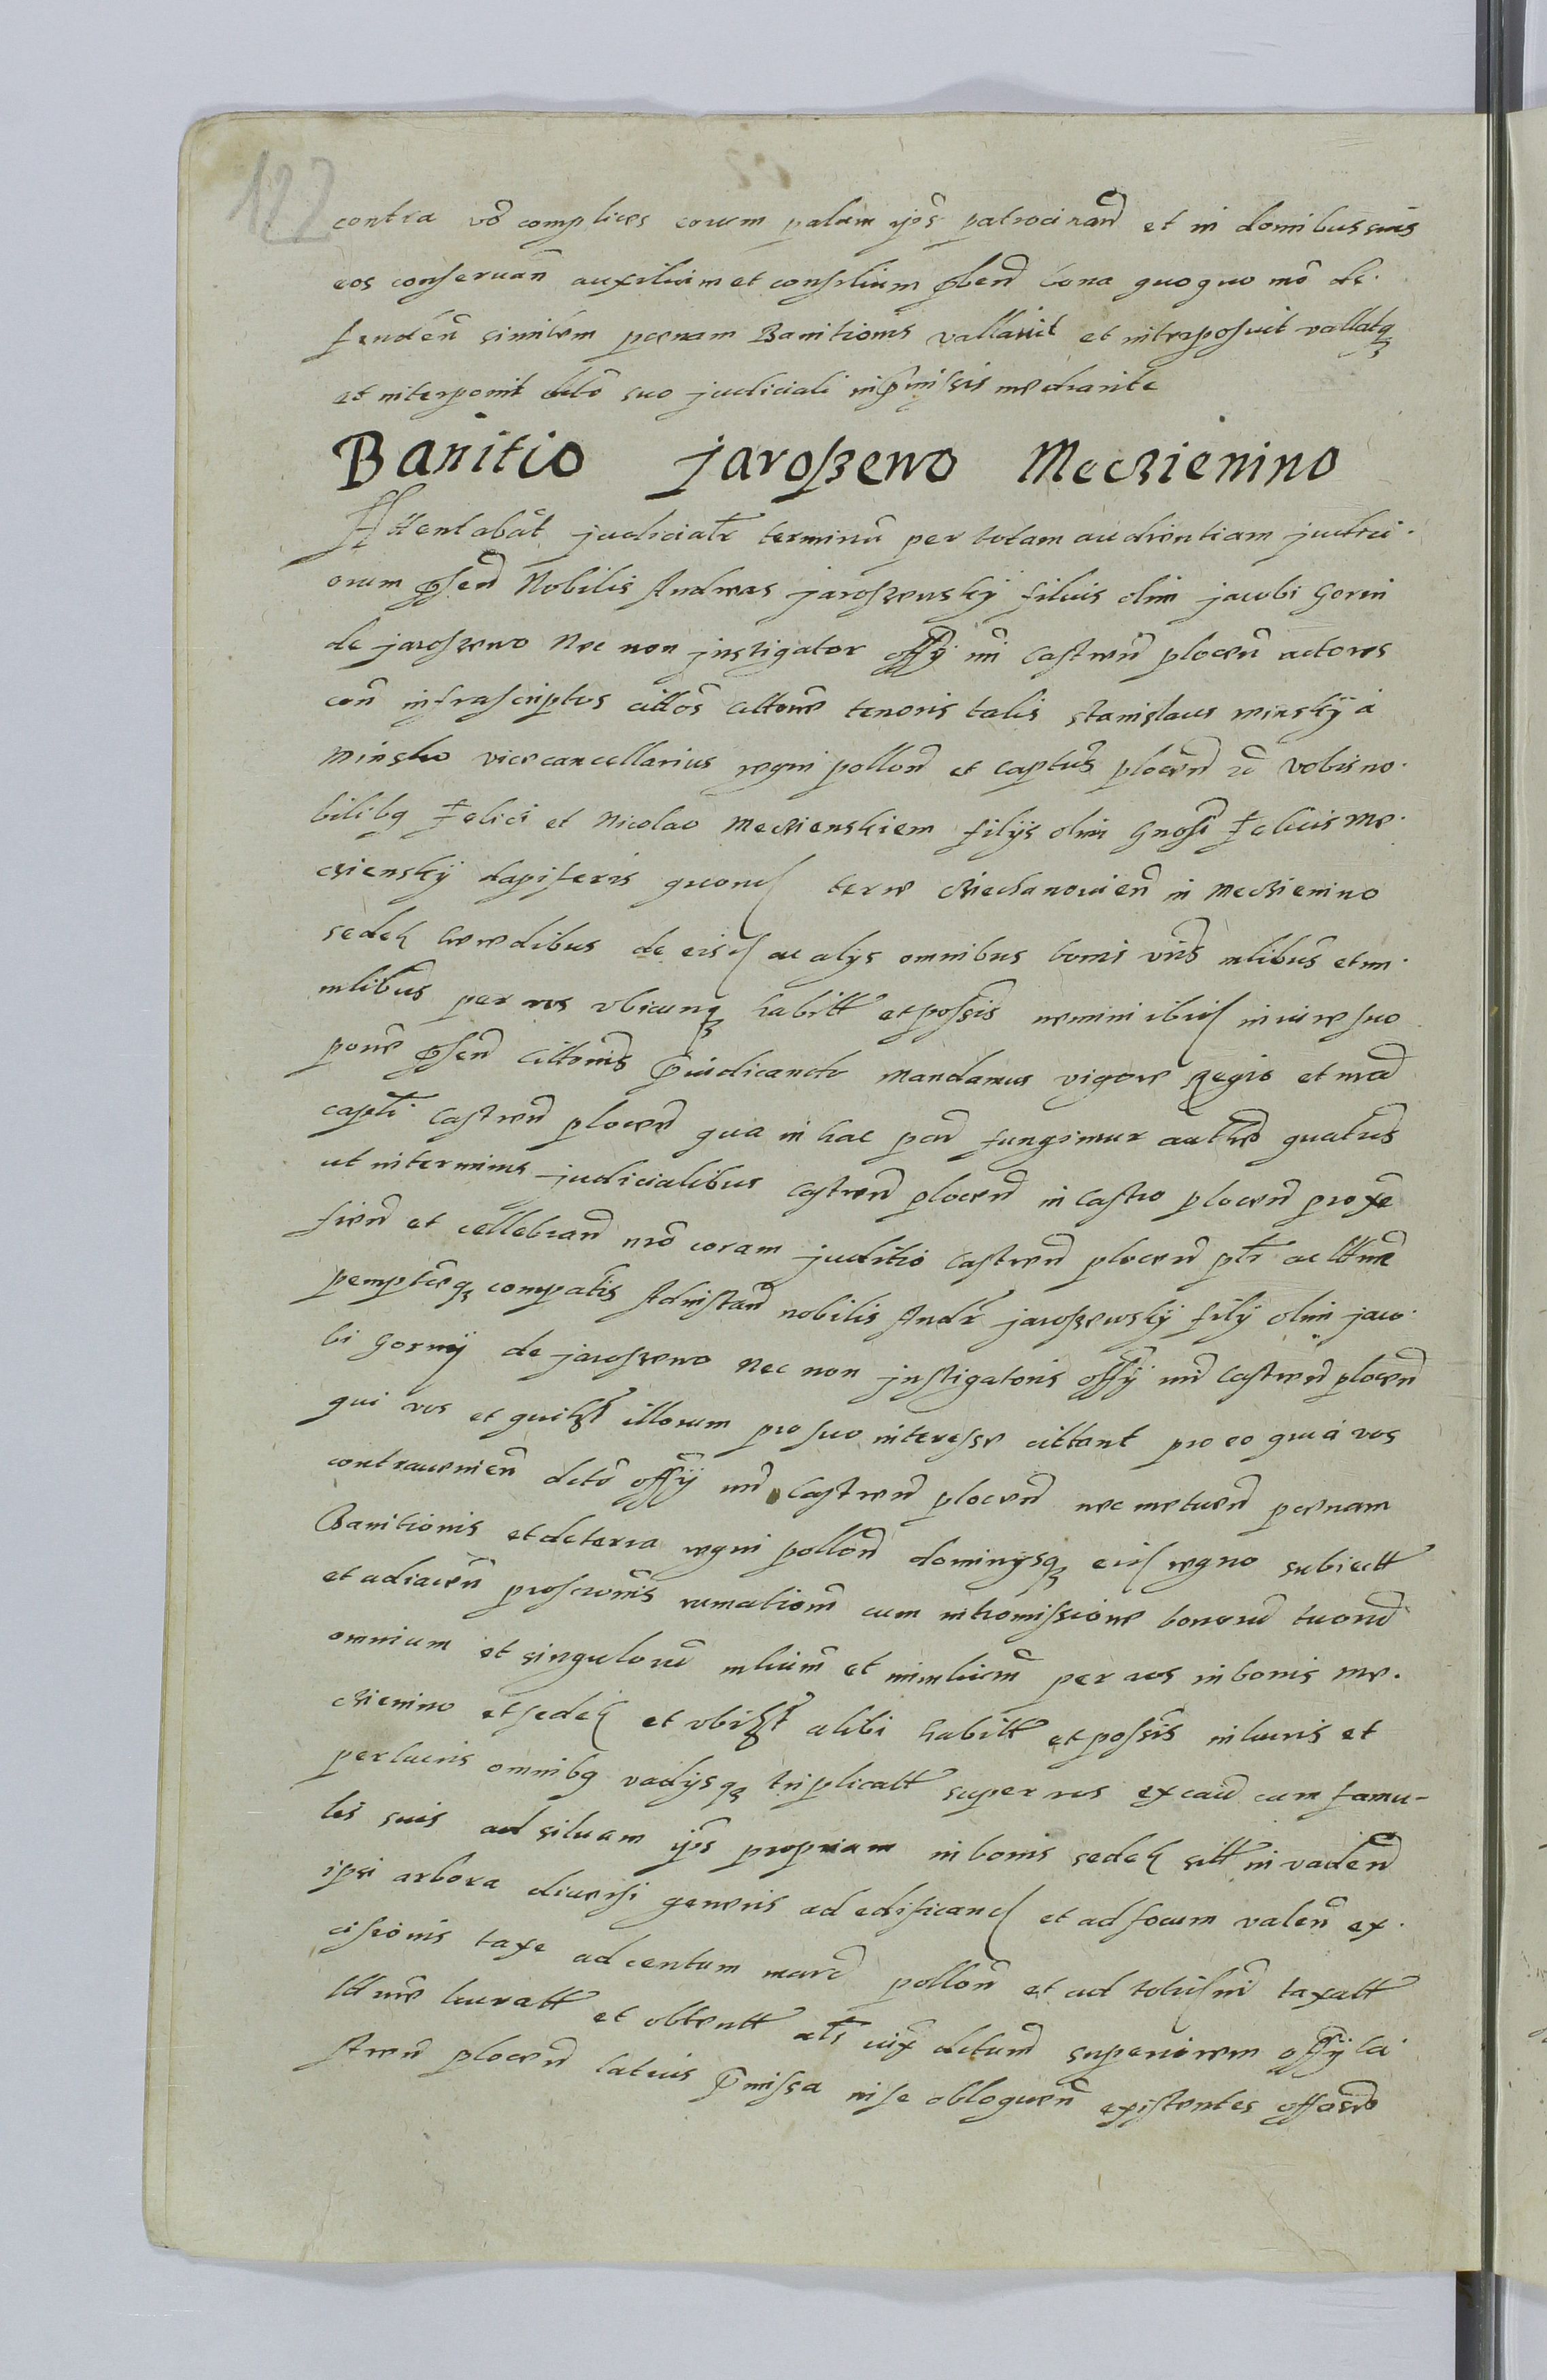 122
contra vō complices eorum palam ipōs patrocinañ et in domibus suis
eos conseruañ auxilium et consilium pbeñ bona quoquo mō de
fendeñ similem poenam Banitionis vallauit et interposuit vallatq3
et interponit dctō suo judiciali in pmissis mediante
Banitio Jaroszewo Meczienino
Attentabat judicialr terminū per totam audientiam judici
orum pseñ Nobilis Andreas Jaroszewsky filius olim Jacobi Gorni
de Jaroszewo Nec non Instigator offy nri Castreñ ploceñ actores
con infrascriptos cittōs cittone tenoris talis Stanislaus Minsky a
Minsko vicecancellarius regni polloñ et captūs ploceñ rc vobis no
bilibq Felici et Nicolao Meczienskiem filijs olim Gnosi Felicis Me
cziensky dapiferis quond terre Cziechanovieñ in Meczienino
sedek heredibus de eisd ac alys omnibus bonis vris mlibus et im
mlibus per vos vbicunq3 habitt et possis nemini ibid in iure suo
pone pseñ cittonis piudicando mandamus vigore Regio et nrā
capti Castreñ ploceñ qua in hac pañ fungimur autte quatus
ut in terminis judicialibus Castreñ ploceñ in Castro ploceñ proxe
fieñ et cellebrañ nrō coram juditio Castreñ ploceñ ptr ac ltme
pemptōeq3 compatis Ad instañ nobilis Andr Jaroszewsky fily olim Jaco
bi Gorny de Jaroszewo Nec non Instigatoris offy nri Castreñ ploceñ
qui vos et quilbt illorum pro suo interesse cittant pro eo quia vos
contrauenieñ dctō offy nri Castreñ ploceñ nec metueñ poenam
Banitionis et de terra regni polloñ dominysq3 eid regno subiectt
et adiaceñ proscronis rumationi cum intromissione bonorū tuorū
omnium et singulorū mlium et immlium per vos in bonis Me
czienino et sedek et vbilbt alibi habitt et possis in lucris et
perlucris omnibq vadysq3 triplicatt super vos ex cauō cum famu-
lis suis ad siluam ipōs propriam in bonis sedek sitt invadeñ
ipsi arbora diuersi generis ad edificand et ad focum valeñ ex
cisionis taxe ad centum marc polloñ et ad totidm taxatt
lttme lucratt et obtentt ats iux dctum superiorem offy Ca
streñ ploceñ latius pmissa in se obloqueñ existentes